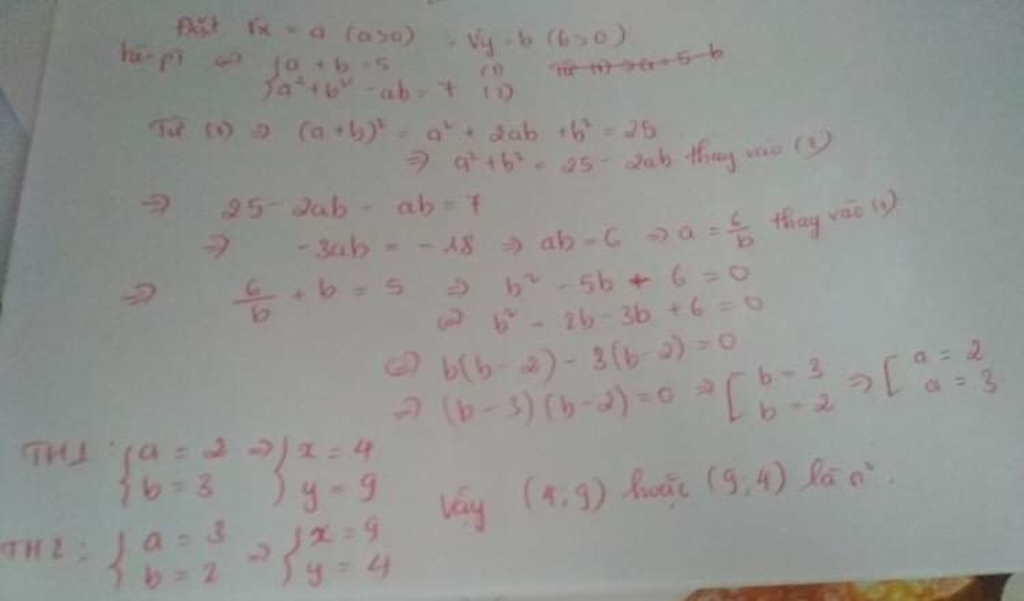 Đặt √x = a (a>0) . √y = b (b>0)
hệ pt ⇔ { a + b = 5 (1) Từ (1) ⇒ a = 5 - b
a² + b² - ab = 7 (2)
Từ (1) ⇒ (a+b)² = a² + 2ab + b² = 25
⇒ a² + b² = 25 - 2ab thay vào (2)
⇒ 25 - 2ab - ab = 7
⇒ -3ab = -18 ⇒ ab = 6 ⇒ a = 6/b thay vào (1)
⇒ 6/b + b = 5 ⇒ b² - 5b + 6 = 0
⇔ b² - 2b - 3b + 6 = 0
⇔ b(b-2) - 3(b-2) = 0
⇒ (b-3)(b-2) = 0 ⇒ [ b = 3 ⇒ [ a = 2
b = 2 a = 3
TH1: { a = 2 ⇒ { x = 4
b = 3 y = 9
Vậy (4;9) hoặc (9;4) là n⁰.
TH2: { a = 3 ⇒ { x = 9
b = 2 y = 4